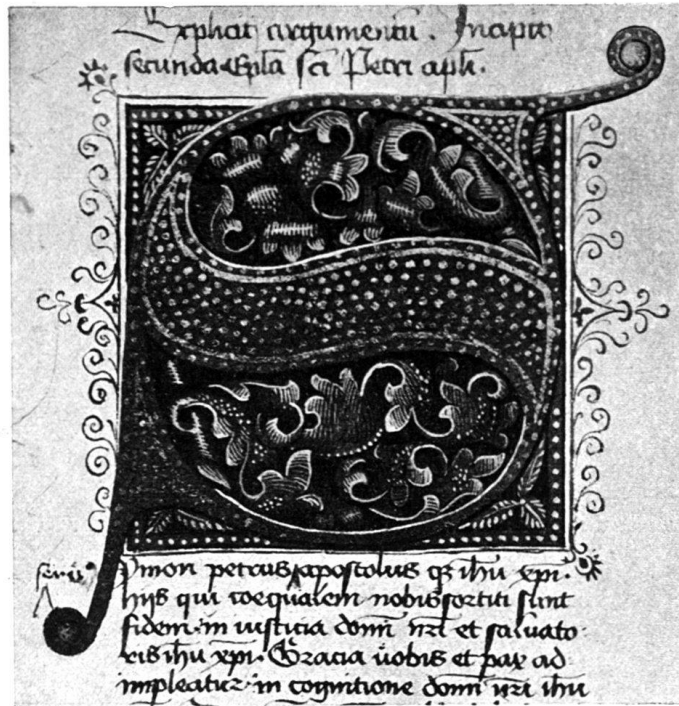 Explicit argumentū. Incipit
secunda Epl̄a sc̄i Petri apl̄i.
S
ymon petrus apostolus ihū xp̄i.
hijs qui coequalem nobis sortiti sunt
fidem in iusticia domī nr̄i et saluato
ris ihū xp̄i. Gracia uobis et pax ad
impleatur in cognitione domī nr̄i ihū